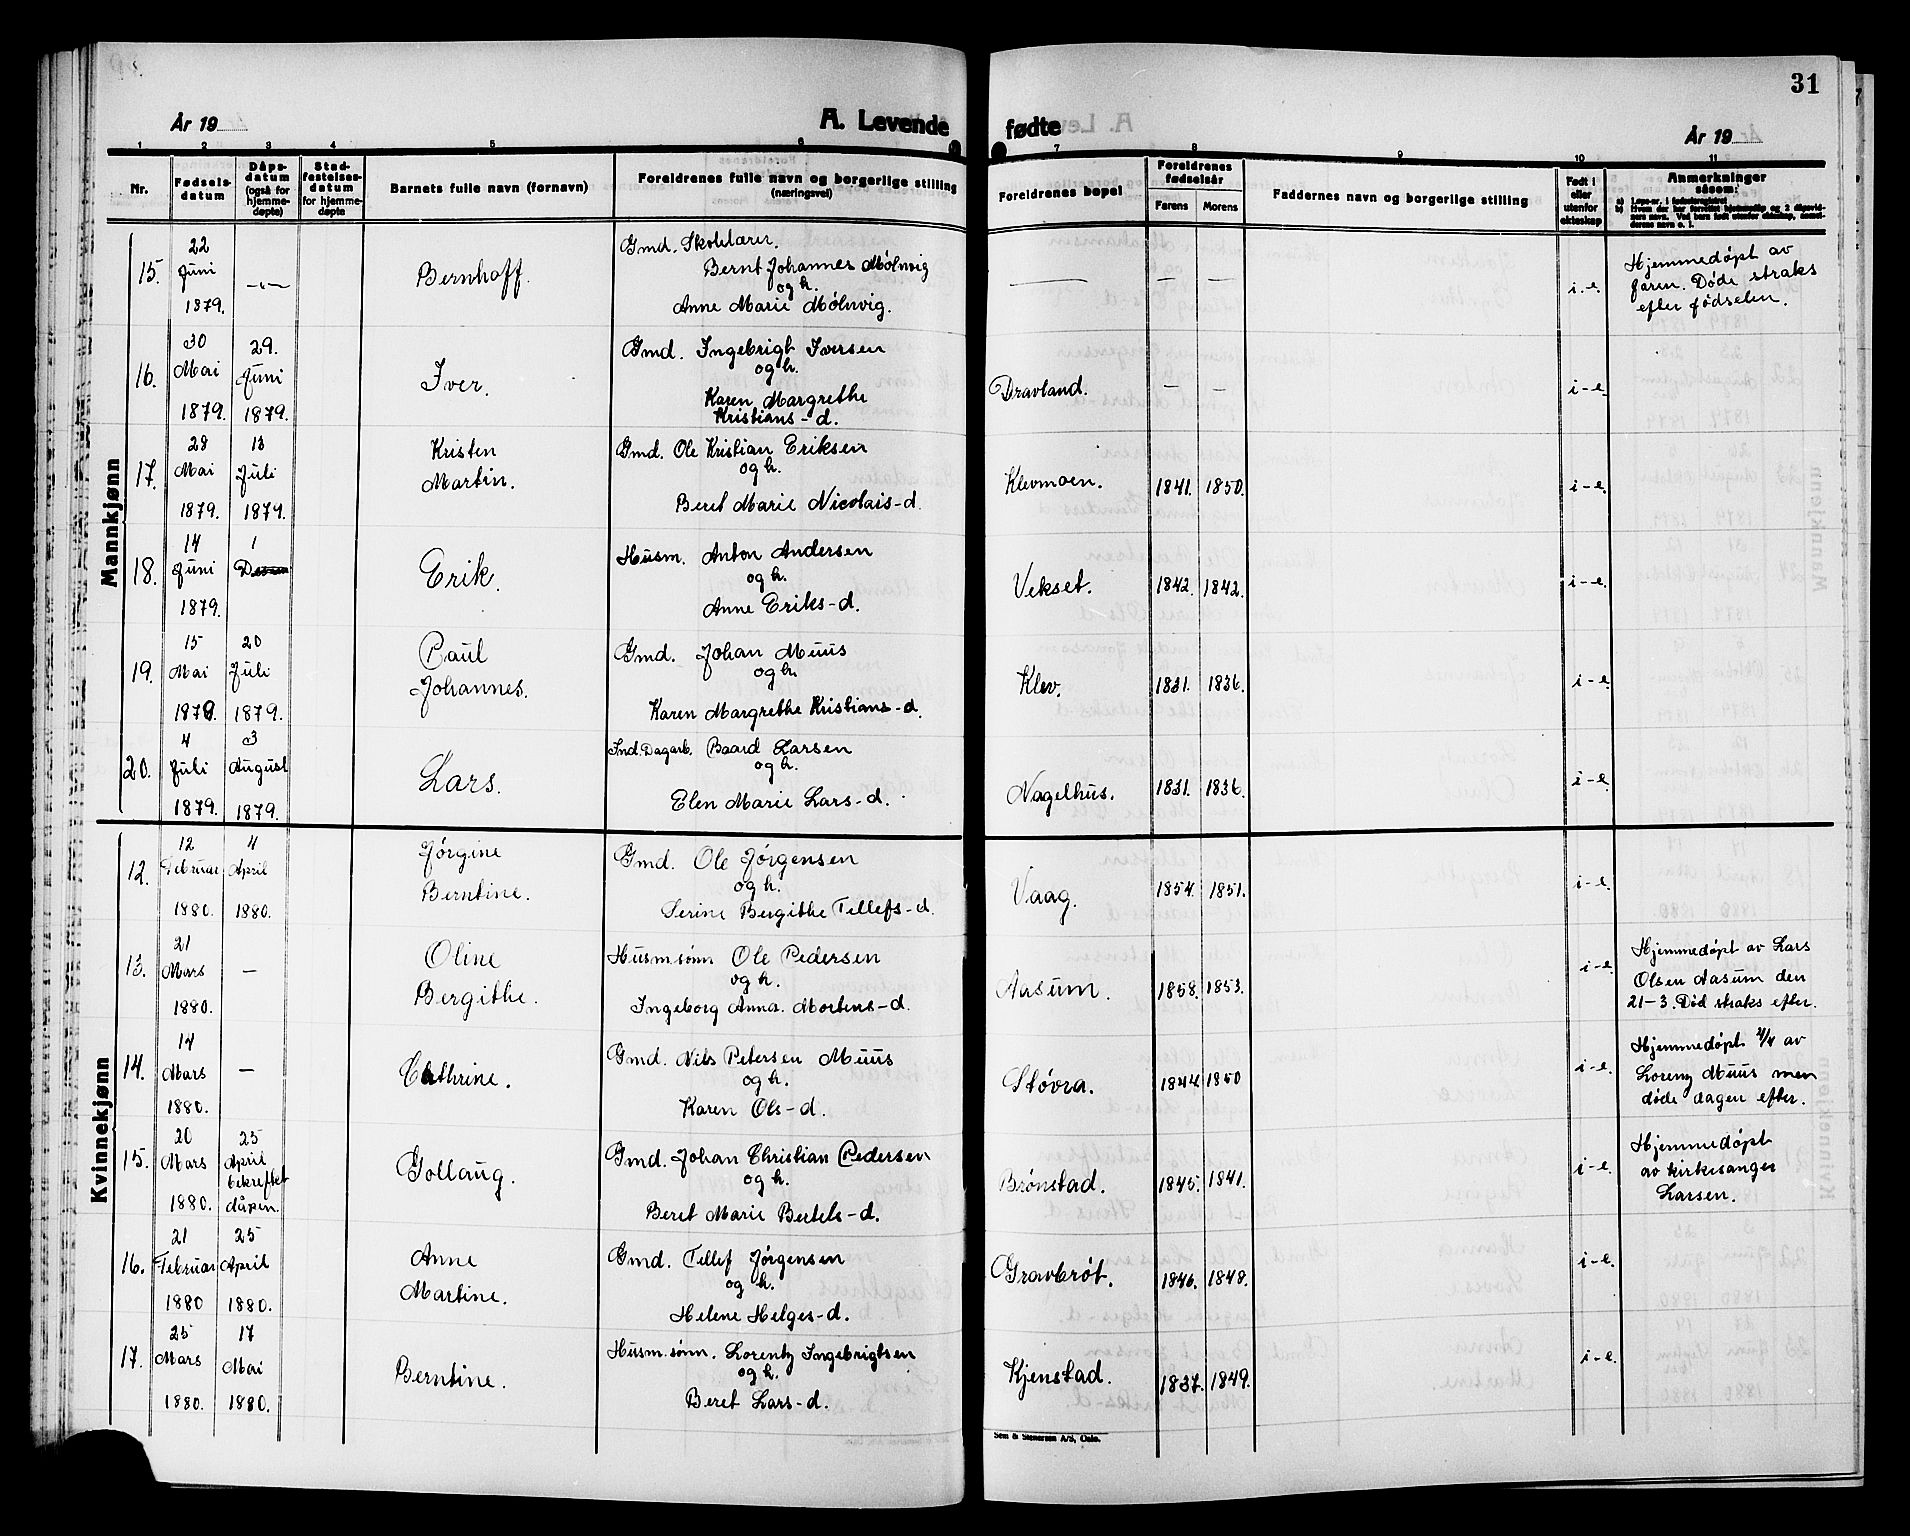 31
År 19
A. Levende
fødte
År 19
1 2 3 4 5 6 7 8 9 10 11
Nr.
Fødsels-
datum
Dåps-
datum
(også for
hjemme-
døpte)
Stad-
festelses-
datum
for hjemme-
døpte
Barnets fulle navn (fornavn)
Foreldrenes fulle navn og borgerlige stilling
(næringsvei)
Foreldrenes bopel
Foreldrenes
fødselsår
Farens Morens
Faddernes navn og borgerlige stilling
Født i
eller
utenfor
ekteskap
Anmerkninger
såsom:
Mannkjønn
15. 22 Juni 1879. -"- Bernhoff. Gmd. Skolelærer.
Bernt Johannes Mölnvig
og h.
Anne Marie Mölnvig. — — — i.-e. Hjemmedøpt av
faren. Døde straks
efter fødselen.
16. 30 Mai 1879. 29. Juni 1879. Iver. Gmd. Ingebrigt Iversen
og h.
Karen Margrethe
Kristians-d. Dravland. — — i-e.
17. 28 Mai 1879. 13 Juli 1879. Kristen
Martin. Gmd. Ole Kristian Eriksen
og h.
Beret Marie Nicolais-d. Klevmoen. 1841. 1850. i-e.
18. 14 Juni 1879. 1 Erik. Husm. Anton Andersen
og h.
Anne Eriks-d. Vekset. 1842. 1842. i-e.
19. 15 Mai 1879. 20 Juli 1879. Paul
Johannes. Gmd. Johan Muus
og h.
Karen Margrethe Kristians-d. Klev. 1831. 1836. i-e.
20. 4 Juli 1879. 3 August 1879. Lars. Ind. Dagarb. Baard Larsen
og h.
Elen Marie Lars-d. Nagelhus. 1831. 1836. i-e.
Kvinnekjønn
12. 12 Februar 1880. 4 April 1880. Jørgine
Berntine. Gmd. Ole Jørgensen
og h.
Serine Bergithe Tellefs-d. Vaag. 1854. 1851. i-e.
13. 21 Mars 1880. — Oline
Bergithe. Husm.sønn Ole Pedersen
og h.
Ingeborg Anna Mortens-d. Aasum. 1858. 1853. i-e. Hjemmedøpt av Lars
Olsen Aasum den
21-3. Død straks efter.
14. 14 Mars 1880. — Cathrine. Gmd. Nils Petersen Muus
og h.
Karen Ols-d. Støvra. 1844. 1850 i-e. Hjemmedøpt 4/4 av
Lorentz Muus men
døde dagen efter.
15. 20 Mars 1880. 25 April bekreftet dåpen. Gollaug. Gmd. Johan Christian Pedersen
og h.
Beret Marie Bertels-d. Brønstad. 1845. 1841. i-e. Hjemmedøpt
av kirkesanger
Larsen.
16. 21 Februar 1880 25 April 1880. Anne
Martine. Gmd. Tellef Jørgensen
og h.
Helene Helges-d. Gravbrøt. 1846. 1848. i-e.
17. 25 Mars 1880. 17 Mai 1880. Berntine. Husm.sønn. Lorentz Ingebrigtsen
og h.
Beret Lars-d. Kjenstad. 1837. 1849. i-e.
Sem & Stenersen A/S, Oslo.